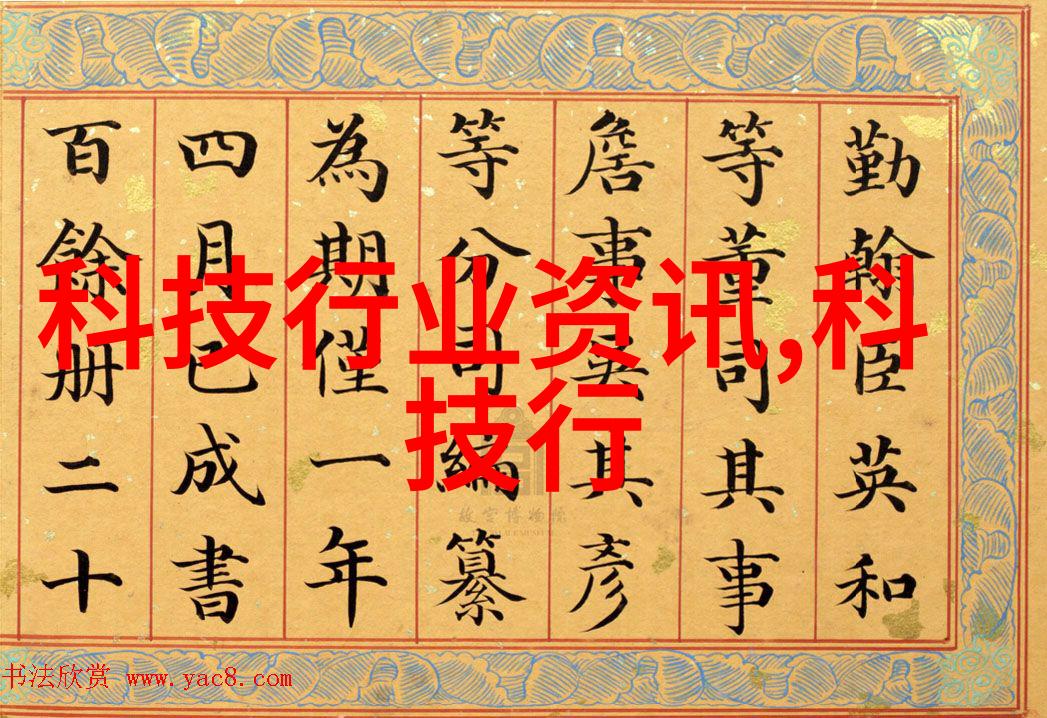 勤翰臣英和
等董司其事
詹事吳其彥
等分司編纂
為期僅一年
四月已成書
百餘册二十
科技行业资讯,科
技行
故宫博物院
书法欣赏 www.yac8.com